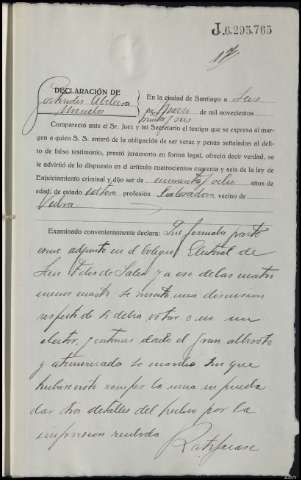 J.6.295.765
17
DECLARACIÓN DE
Gertrudis Abilleira
En la ciudad de Santiago a seis
de Marzo de mil novecientos
treinta y seis
Comparece ante el Sr. Juez y mi Secretario el testigo que se expresa al margen
a quien S. S. enteró de la obligación de ser veraz y penas señaladas al delito
de falso testimonio, prestó juramento en forma legal, ofreció decir verdad, se
le advirtió de lo dispuesto en el artículo cuatrocientos cuarenta y seis de la ley de
Enjuiciamiento criminal y dijo ser de cincuenta y ocho años de
edad; de estado soltera profesión labrador, vecino de
Vedra
Examinado convenientemente declara: Que formaba parte
como adjunto en el Colegio Electoral de
San Félix de Sales y a eso de las cuatro
menos cuarto se inició una discusión
respecto de si debía votar o no un
elector, y entonces dado el gran alboroto
y atemorizado se marchó sin que
hubiese visto romper la urna ni pueda
dar otros detalles del hecho por la
impresión recibida
Ratificase